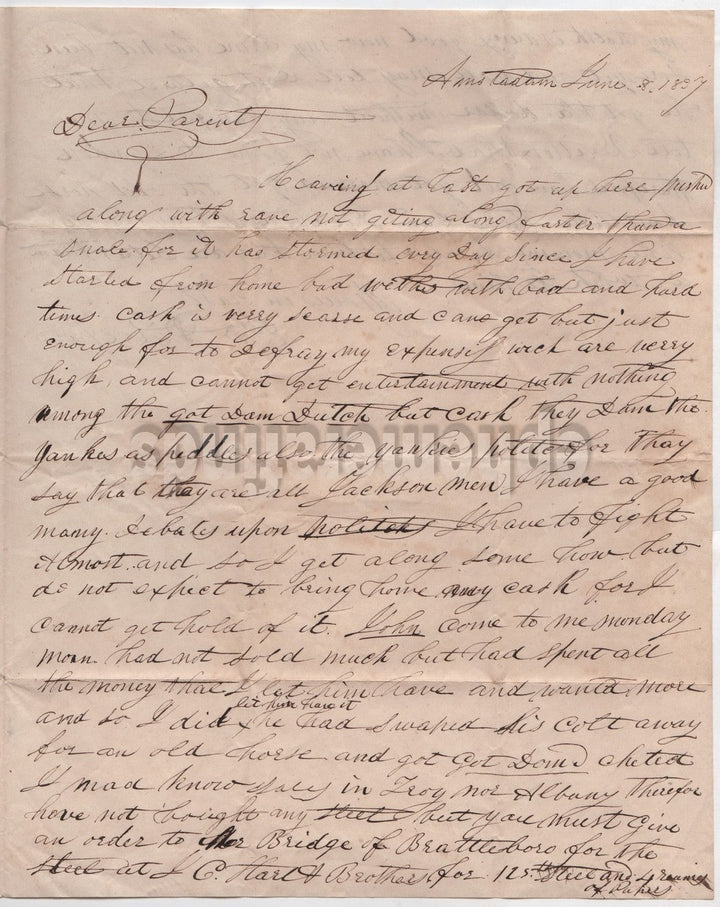 Amstadam June 8. 1837
Dear Parents
Heaving at last got up here pushd
along with rave not giting along faster than a
snale for it has stormed evry Day since I have
started from home bad wether with bad and hard
times cash is verry scarse and cane get but just
enough for to defray my expenses wich are verry
high, and cannot get entertainment with nothing
among the got Dam Dutch but cash they Dam the
Yankes as peddles also the yankies polites for thay
say that they are all Jackson men I have a good
many debates upon politicks I have to fight
almost and so I get along some how but
do not expect to bring home any cash for I
cannot get hold of it. John come to me monday
morn had not sold much but had spent all
the money that I let him have and wanted more
let him have it
and so I did he had swaped his colt away
for an old horse and got Got Damd cheted
I mad know sales in Troy nor Albany therefor
have not bought any steel but you must give
an order to Bridge of Brattleboro for the
steel at J C. Hart & Brothers for 125 steel and 4 reames
of papers
ephemeralinos